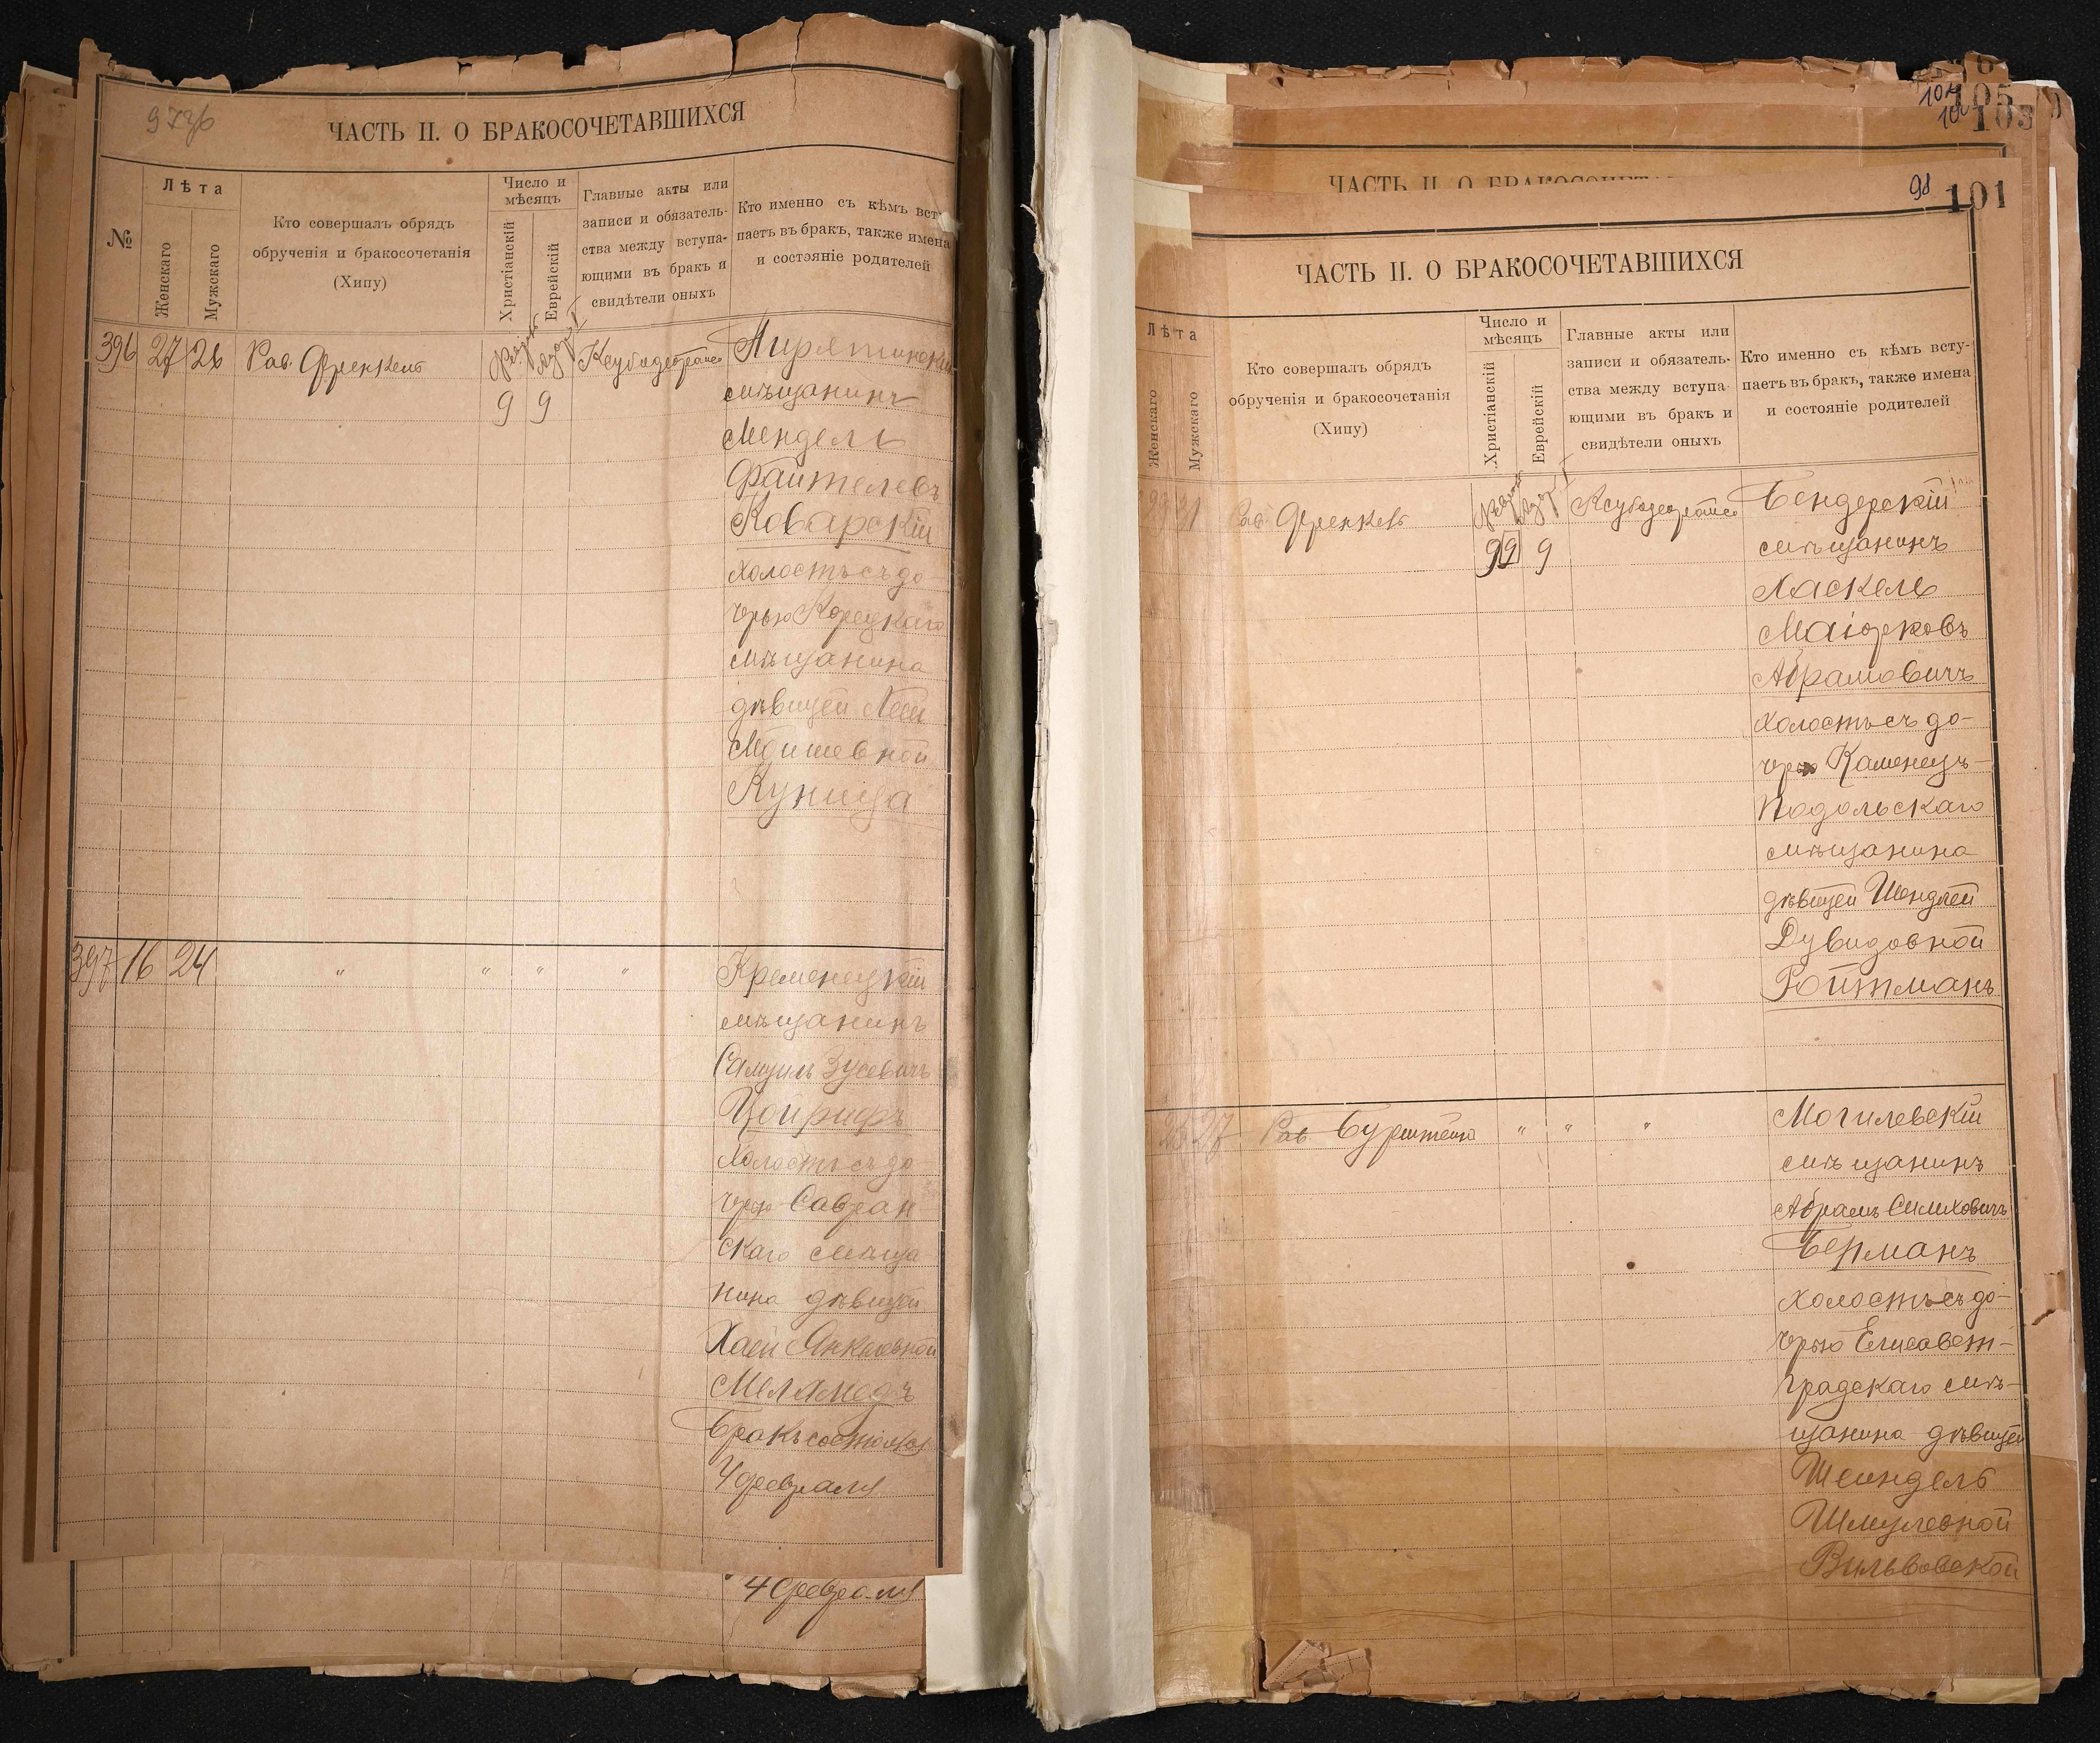 97 об
ЧАСТЬ II. О БРАКОСОЧЕТАВШИХСЯ
№
Лѣта
Женскаго
Мужскаго
Кто совершалъ обрядъ
обрученія и бракосочетанія
(Хипу)
Число и
мѣсяцъ
Христіанскій
Еврейскій
Главные акты или
записи и обязатель-
ства между вступа-
ющими въ бракъ и
свидѣтели оныхъ
Кто именно съ кѣмъ всту
паетъ въ бракъ, также имена
и состояніе родителей
396 27 26 Рав. Френкель
9 9
мѣщанинъ
Мендель
Файтелевъ
Коварскій
холостъ съ до-
черью Корецкаго
мѣщанина
дѣвицей Леей
Мошневной
Куница
397 16 24 " " " " Кременецкій
мѣщанинъ
Самуилъ Зусевичъ
Цойрифъ
холостъ съ до
черью Савран
скаго мѣща
нина дѣвицей
Хаей Янкелевной
Меламедъ
Бракъ состоялся
4 февраля
4 февраля
105
103
ЧАСТЬ II. О БРАКОСОЧЕТА
98 101
ЧАСТЬ II. О БРАКОСОЧЕТАВШИХСЯ
Лѣта
Женскаго
Мужскаго
Кто совершалъ обрядъ
обрученія и бракосочетанія
(Хипу)
Число и
мѣсяцъ
Христіанскій
Еврейскій
Главные акты или
записи и обязатель-
ства между вступа-
ющими въ бракъ и
свидѣтели оныхъ
Кто именно съ кѣмъ всту-
паетъ въ бракъ, также имена
и состояніе родителей
31 Рав. Френкель Бендерскій
9 9 мѣщанинъ
Хаскель
Маіорковъ
Абрамовичъ
холостъ съ до-
черью Каменецъ-
Подольскаго
мѣщанина
дѣвицей Шендлей
Дувидовной
Ройтманъ
25 27 Рав. Бурштейнъ " " " Могилевскій
мѣщанинъ
Абрамъ Симховичъ
Берманъ
холостъ съ до-
черью Елисавет-
градскаго мѣ-
щанина дѣвицей
Шейндель
Шмулевной
Вильвовской